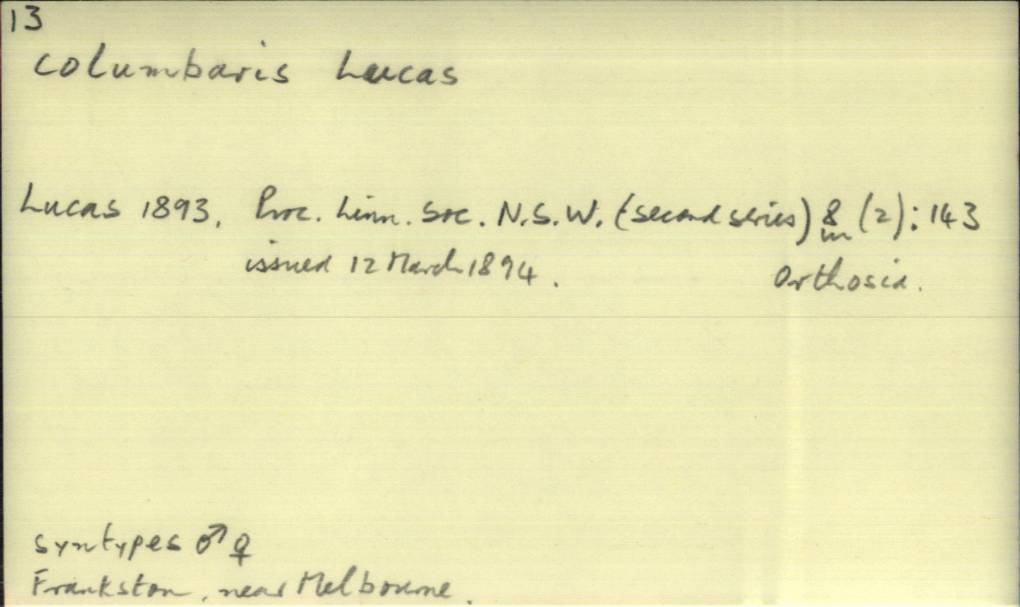 13
columbaris Lucas
Lucas 1893. Proc. Linn. Soc. N.S.W. (second series) 8 (2): 143
issued 12 March 1894.
Orthosia.
syntypes ♂ ♀
Frankston, near Melbourne.